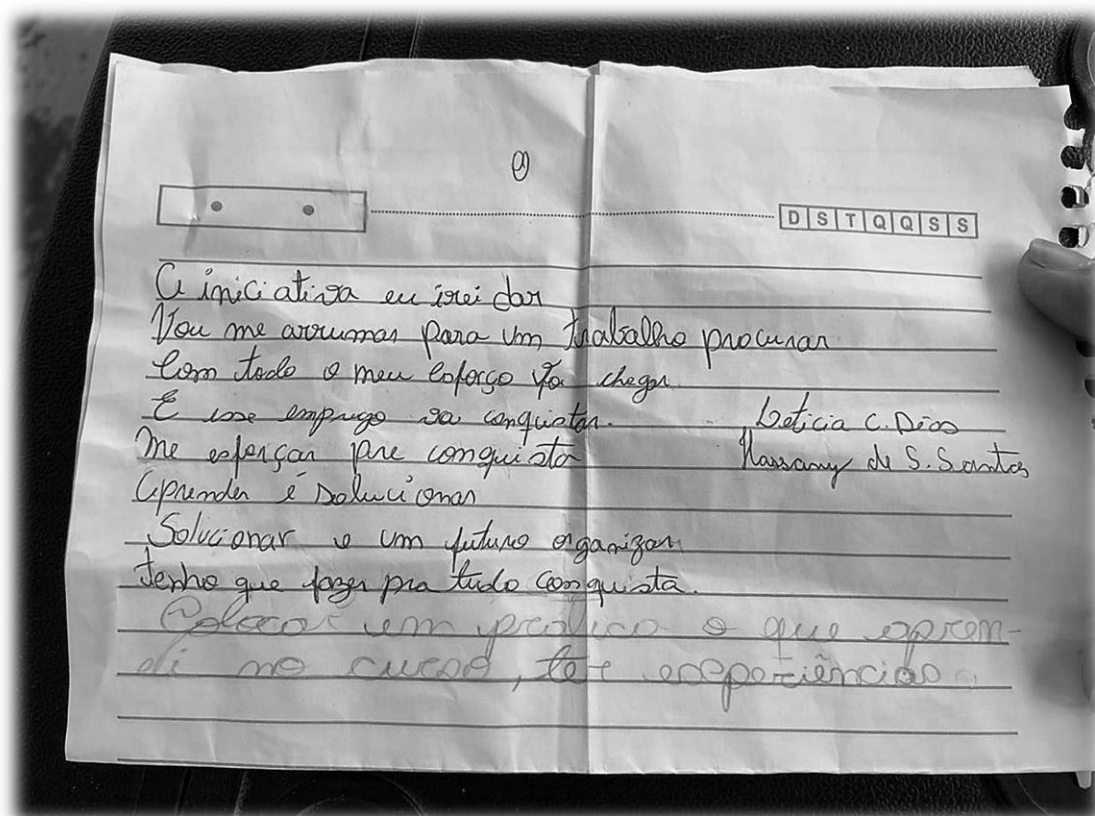 D S T Q Q S S
A iniciativa eu irei dar
Vou me arrumar para um trabalho procurar
Com todo o meu esforço vou chegar
E esse emprego vou conquistar.
Leticia C. Dias
me esforçar pra conquista
de S. Santos
Aprender é solucionar
Solucionar e um futuro organizar
tenho que fazer pra tudo conquista.
Colocar em prática o que apren-
di no curso, ter experiências.